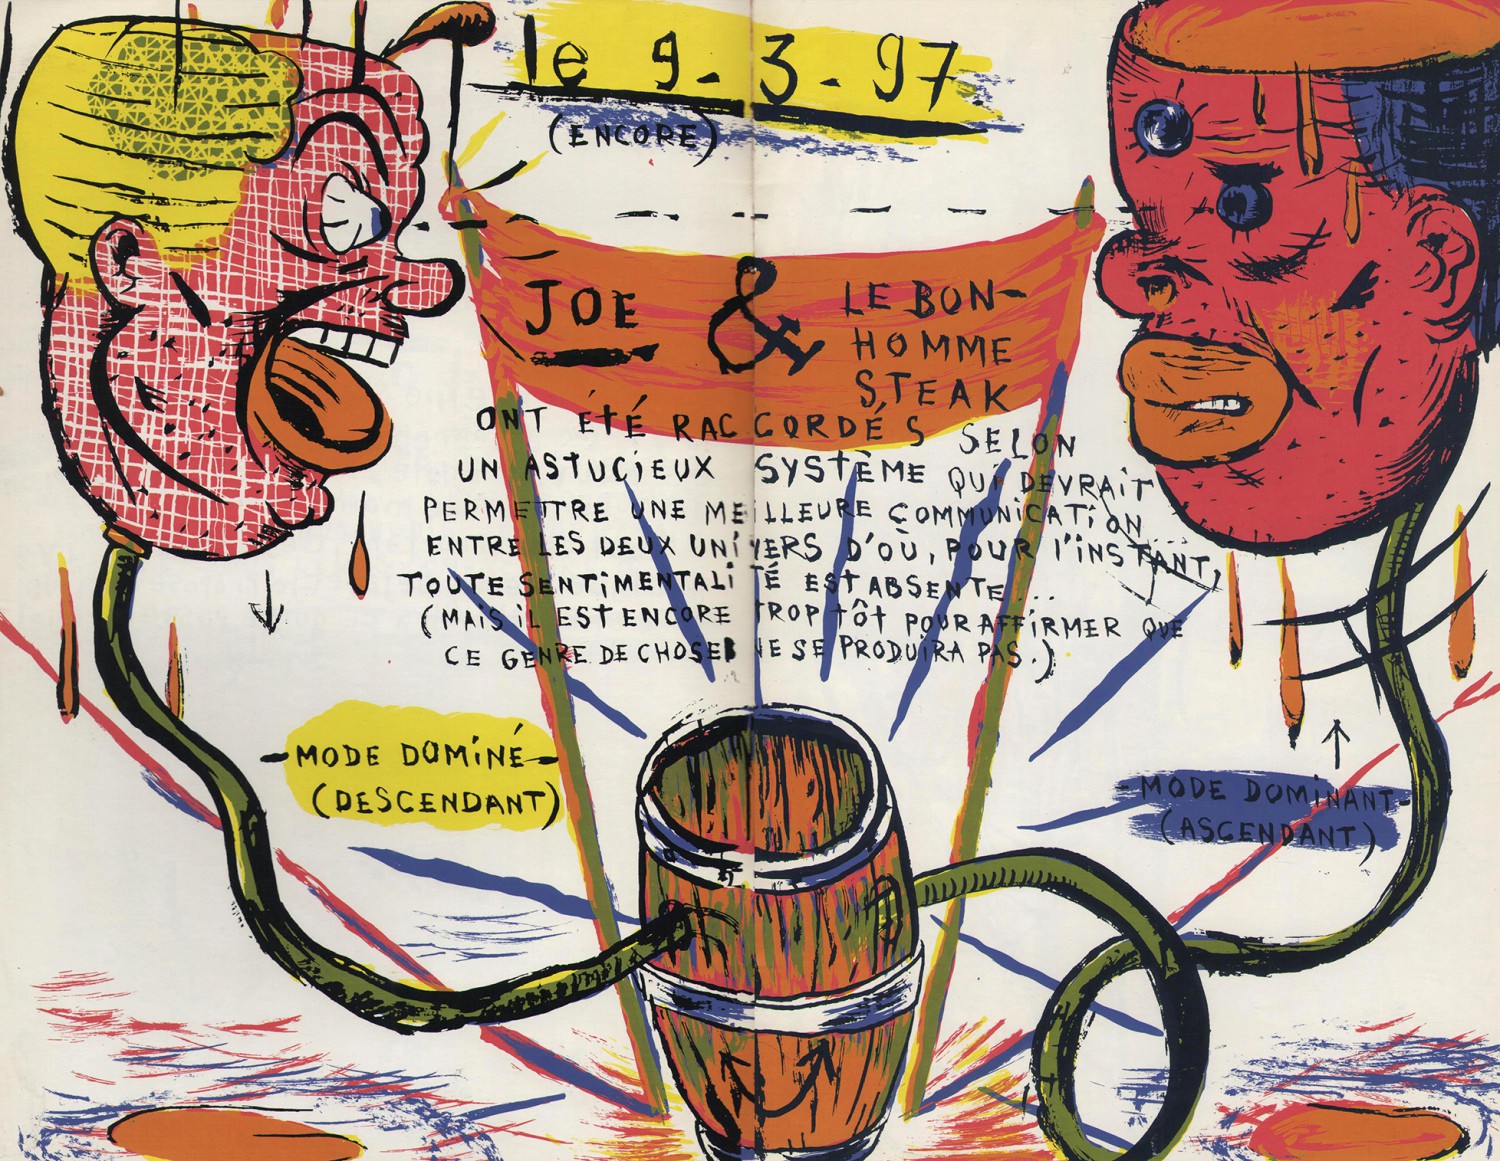 le 9-3-97
(ENCORE)
JOE & LE BON-
HOMME
STEAK
ONT ÉTÉ RACCORDÉS SELON
UN ASTUCIEUX SYSTÈME QUI DEVRAIT
PERMETTRE UNE MEILLEURE COMMUNICATION
ENTRE LES DEUX UNIVERS D'OÙ, POUR l'INSTANT,
TOUTE SENTIMENTALITÉ EST ABSENTE...
(MAIS IL EST ENCORE TROP TÔT POUR AFFIRMER QUE
CE GENRE DE CHOSES NE SE PRODUIRA PAS.)
-MODE DOMINÉ-
(DESCENDANT)
-MODE DOMINANT-
(ASCENDANT)